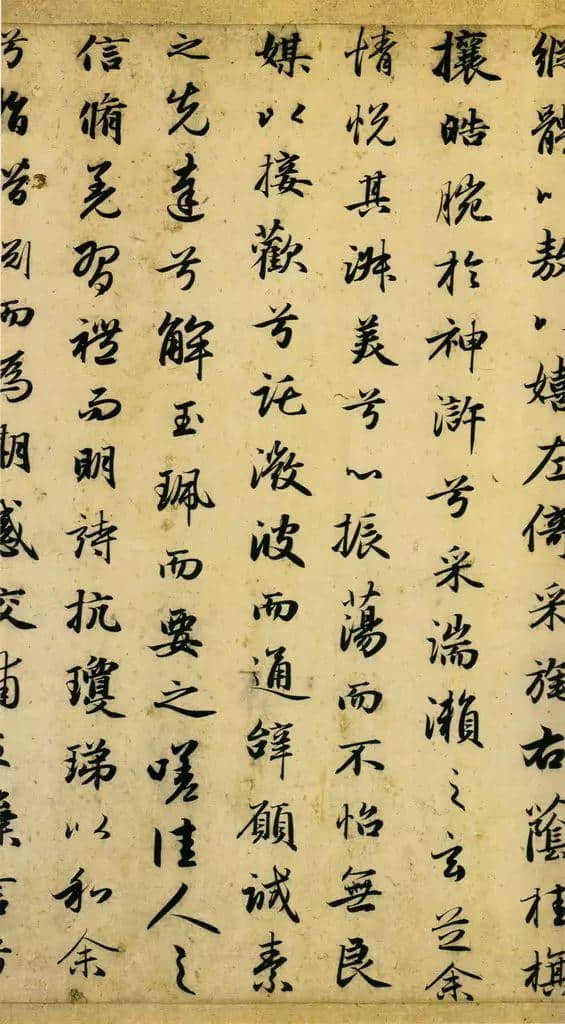 縱體以敖以嬉左倚采旄右蔭桂旗
攘皓腕於神滸兮采湍瀨之玄芝余
情悦其淑美兮心振蕩而不怡無良
媒以接歡兮託微波而通辭願誠素
之先達兮解玉珮而要之嗟佳人之
信脩羌習禮而明詩抗瓊珶以和余
兮指而為期感交甫之棄言兮